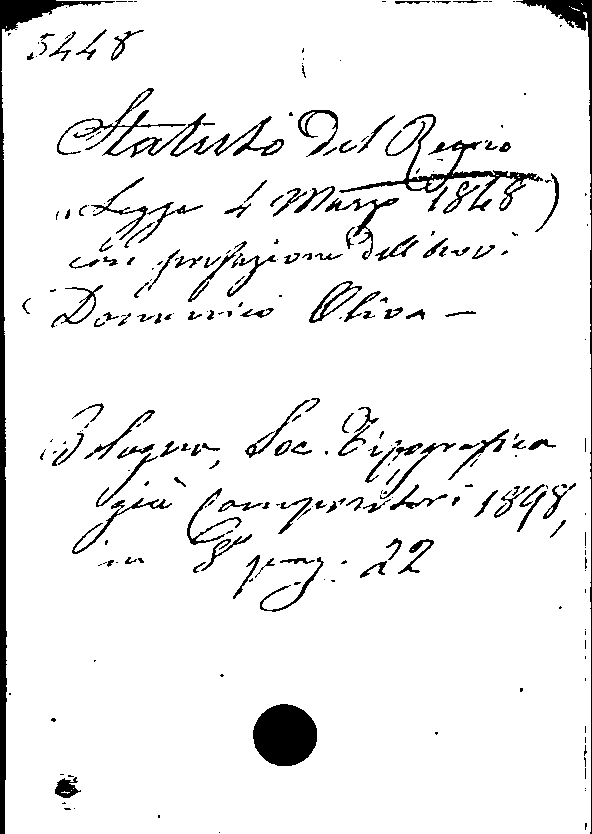 5448
Statuto del Regno
(Legge 4 Marzo 1848)
con prefazione dell'avv.
Domenico Oliva —
Bologna, Soc. Tipografica
già Compositori 1898,
in 8° pag. 22